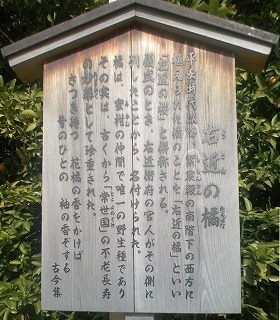 右近の橘
平安時代以降、紫宸殿の南階下の西方に
植えられた橘のことを「右近の橘」といい
「左近の桜」と併称される。
儀式のとき、右近衛府の官人がその側に
列したことから、名付けられた。
橘は、蜜柑の仲間で唯一の野生種であり
その実は、古くから「常世国」の不老長寿
の妙薬として珍重された。
さつき待つ 花橘の香をかげば
昔のひとの 袖の香ぞする
古今集